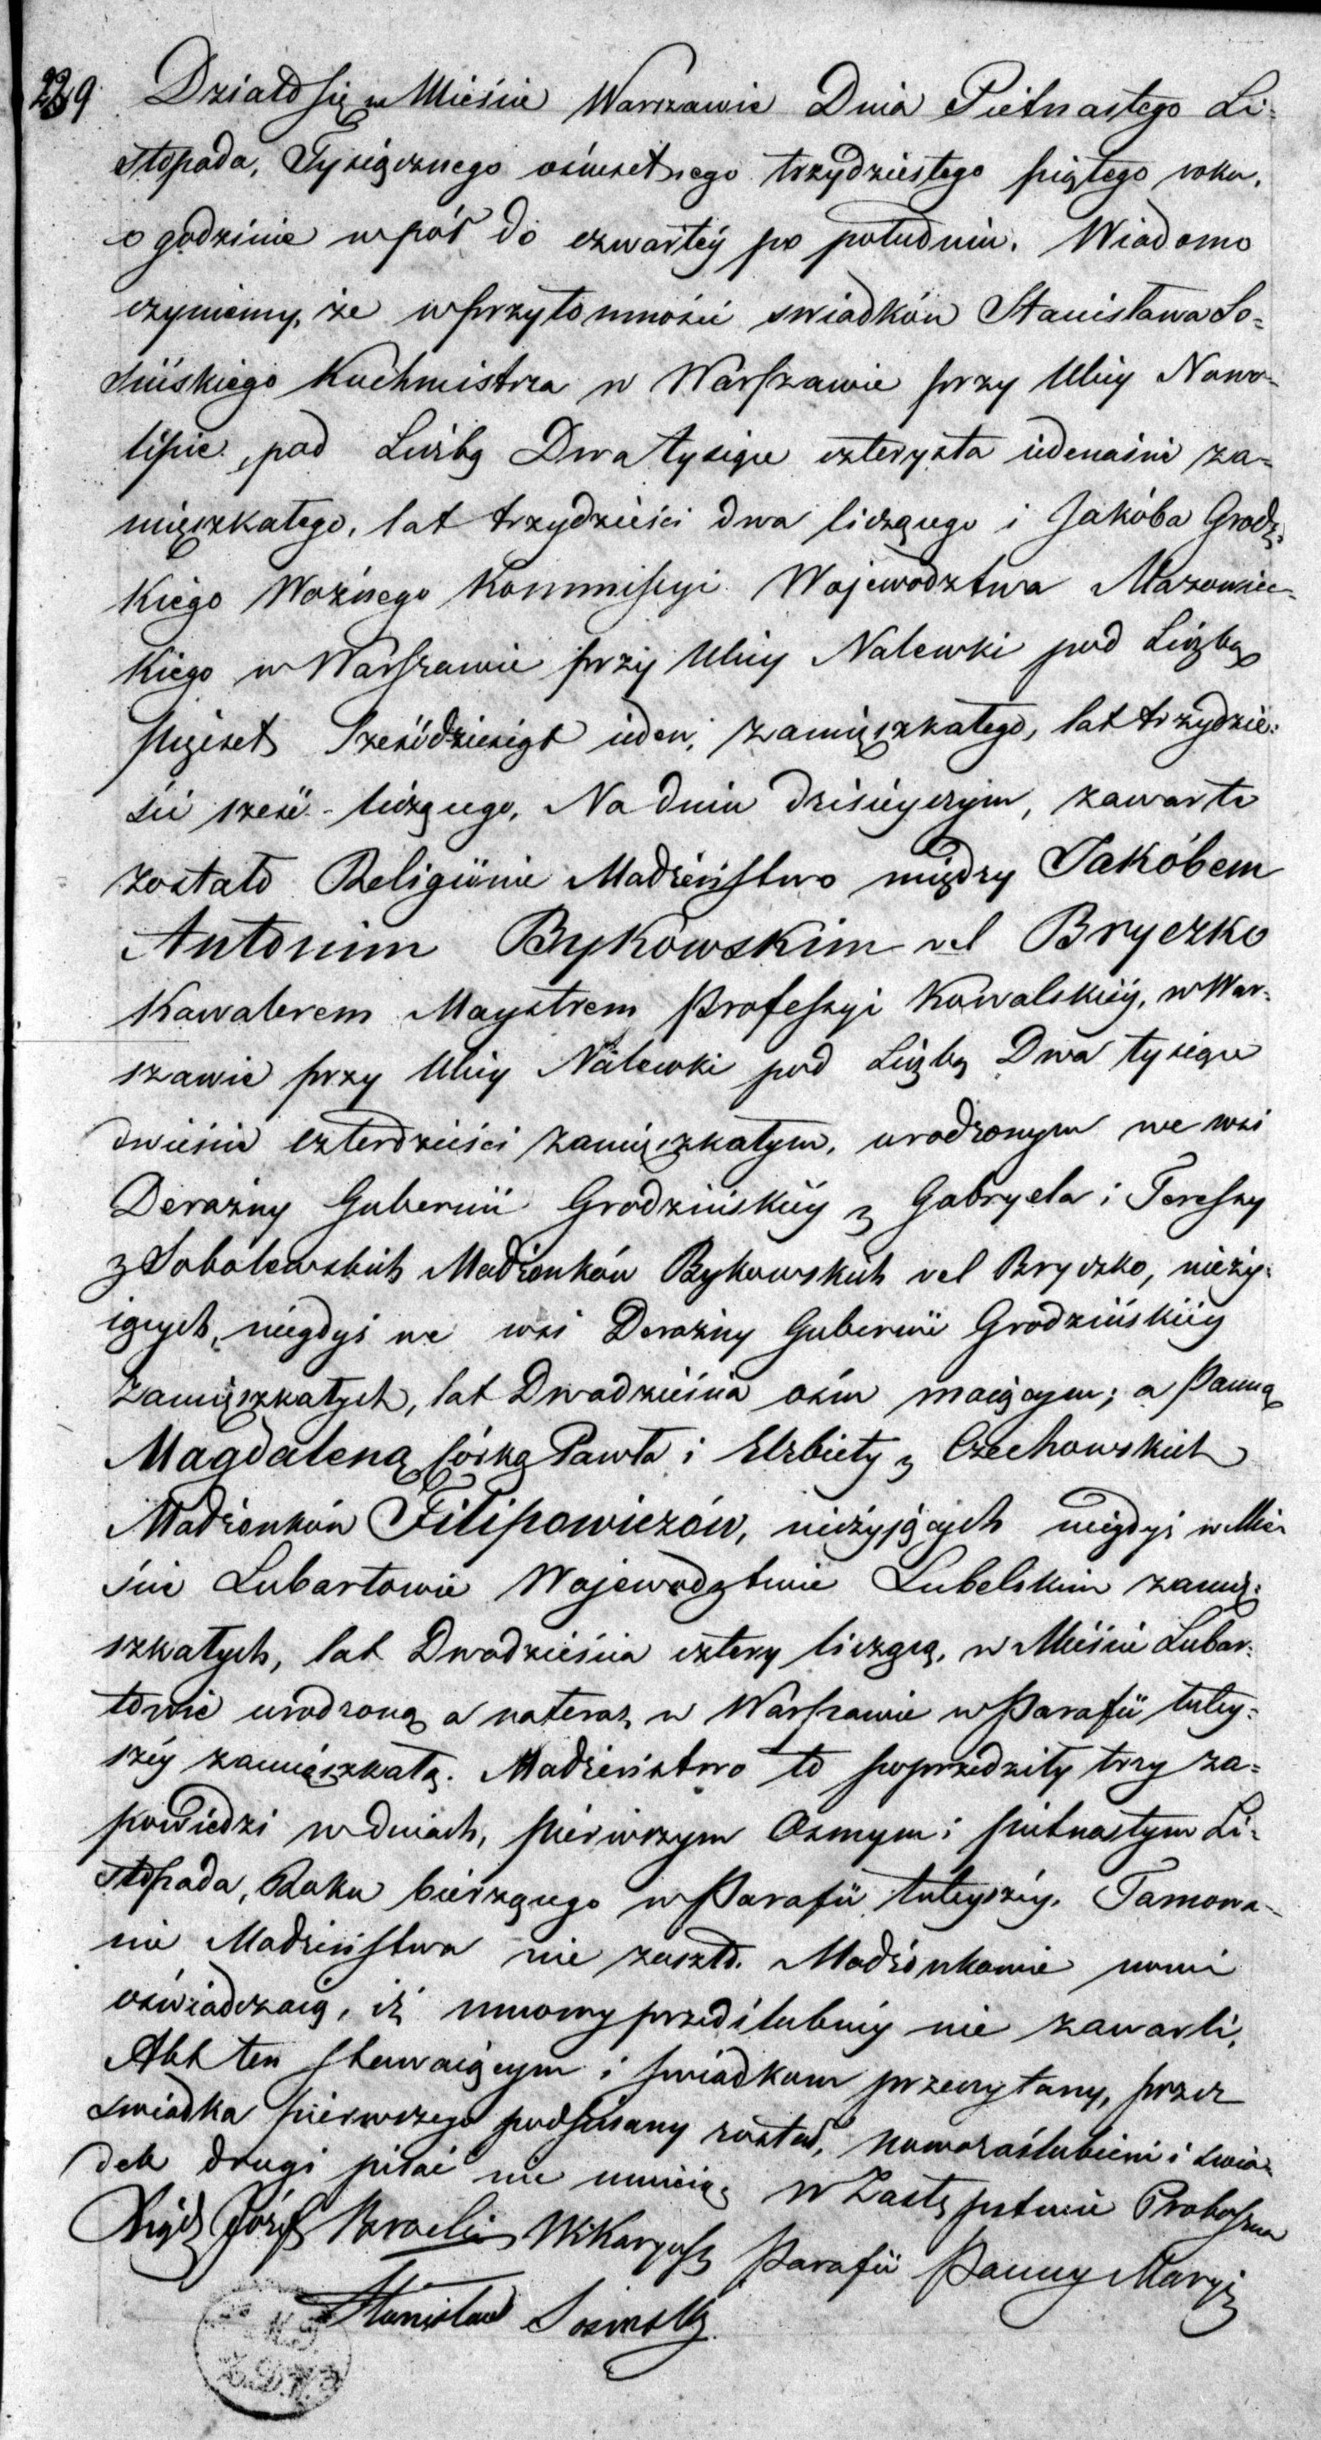 229 Działo się w Mieście Warszawie Dnia Pietnastego Li-
stopada, Tysiącznego ośmsetnego trzydziestego piątego roku,
o godzinie wpół do czwartéj po południu. Wiadomo
czyniemy, że w przytomności swiadków Stanisława So-
sińskiego Kuchmistrza w Warszawie przy Ulicy Nowo-
lipie, pod Liczbą Dwa tysiące czterysta iedenaście za-
mięszkałego, lat trzydzieści dwa liczącego i Jakóba Grodz-
kiego Woźnego Kommissyi Województwa Mazowiec-
kiego w Warszawie przy Ulicy Nalewki pod Liczbą
pięćset sześćdziesiąt ieden, zamięszkałego, lat trzydzie-
ści sześć liczącego, Na dniu dzisieyszym, zawarte
zostało Religijnie Małżeństwo między Jakóbem
Antonim Bykowskim vel Bryczko
Kawalerem Maystrem Professyi Kowalskiéy, w War-
szawie przy Ulicy Nalewki pod Liczbą Dwa tysiące
dwieście czterdzieści zamięszkałym, urodzonym we wsi
Deraźny Gubernii Grodzińskiéy z Gabryela i Teressy
z Sobolewskich Małżonków Bykowskich vel Bryczko, nieży-
iących, niegdyś we wsi Deraźny Gubernii Grodzińskiéy
zamięszkałych, lat Dwadzieścia ośm maiącym; a Panną
Magdaleną córką Pawła i Elżbiety z Czechowskich
Małżonków Filipowiczów, nieżyjących niegdyś w Mie-
ście Lubartowie Województwie Lubelskim zamię-
szkałych, lat Dwadzieścia cztery liczącą, w Mieście Lubar-
towie urodzoną a na teraz w Warszawie w Parafii tutey-
széy zamięszkałą. Małżeństwo to poprzedziły trzy za-
powiedzi w dniach, pierwszym Osmym i pietnastym Li-
stopada, Roku bieżącego w Parafii tuteyszéy. Tamowa-
nie Małżeństwa nie zaszło. Małżonkowie nowi
oświadczaią, iż umowy przedślubnéy nie zawarli,
Akt ten stawaiącym i swiadkom przeczytany, przez
swiadka pierwszego podpisany został, nowozaślubieni i swia-
dek drugi pisać nie umieią. W Zastępstwie Proboszcza
Xiądz Józef Wikaryusz Parafii Panny Maryi
Stanisław Sosinski